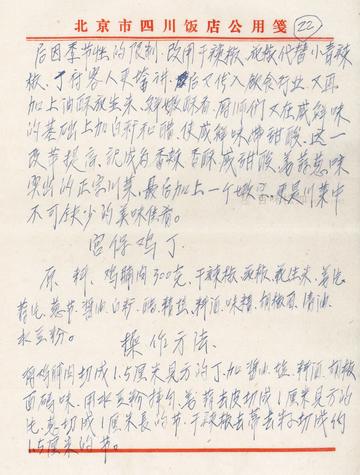 北京市四川饭店公用笺
22
后因季节性的限制,改用干辣椒,花椒代替小青辣
椒,了付客人更喜讲.后又传入饮食行业,又再
加上油酥花生米,鲜嫩酥香,厨师们又在咸鲜味
的基础上加白糖和醋,使咸鲜味带甜酸,这一
改节提高,形成为香辣,香酥,咸甜酸,姜蒜葱味
突出的正宗川菜,最后加上一个嫩字,更是川菜中
不可缺少的美味佳肴。
宫保鸡丁
原料 鸡脯肉300克,干辣椒,花椒,花生米,姜片
蒜片,葱节,酱油,白糖,醋,精盐,料酒,味精,胡椒面,清油,
水豆粉。
操作方法.
将鸡脯肉切成1.5厘米见方的丁,加酱油,盐,料酒,胡椒
面码味,用水豆粉挂匀,姜蒜去皮切成1厘米见方的
片,葱切成1厘米长的节,干辣椒去蒂去籽切成约
1.5厘米的节。